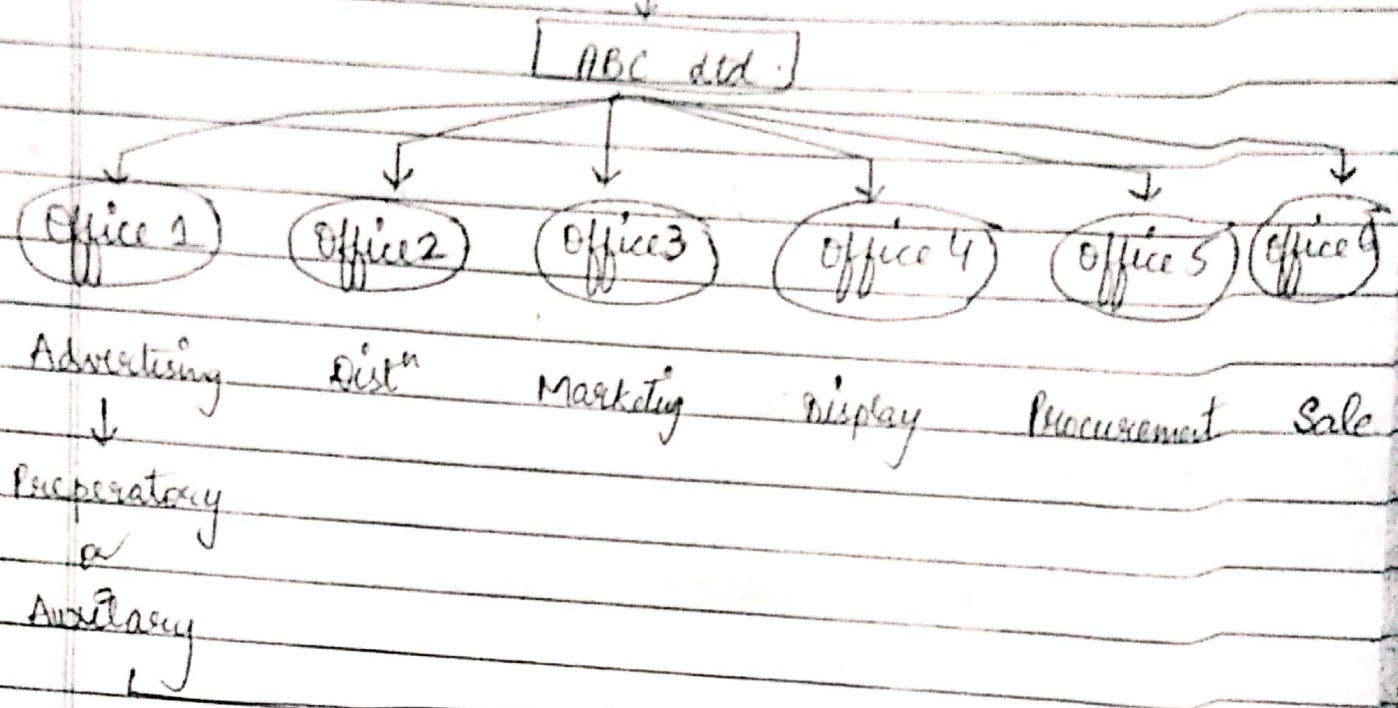 ABC Ltd.
Office 1 Office 2 Office 3 Office 4 Office 5 Office 6
Advertising Distⁿ Marketig Display Procurement Sale
Preperatory
or
Auxilary